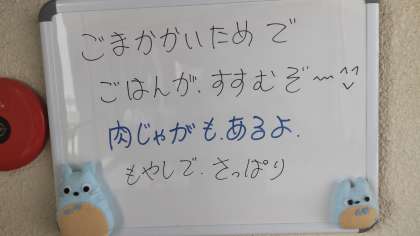 ごまかかいためで
ごはんが.すすむぞ〜^^
肉じゃがも.あるよ.
もやしで.さっぱり